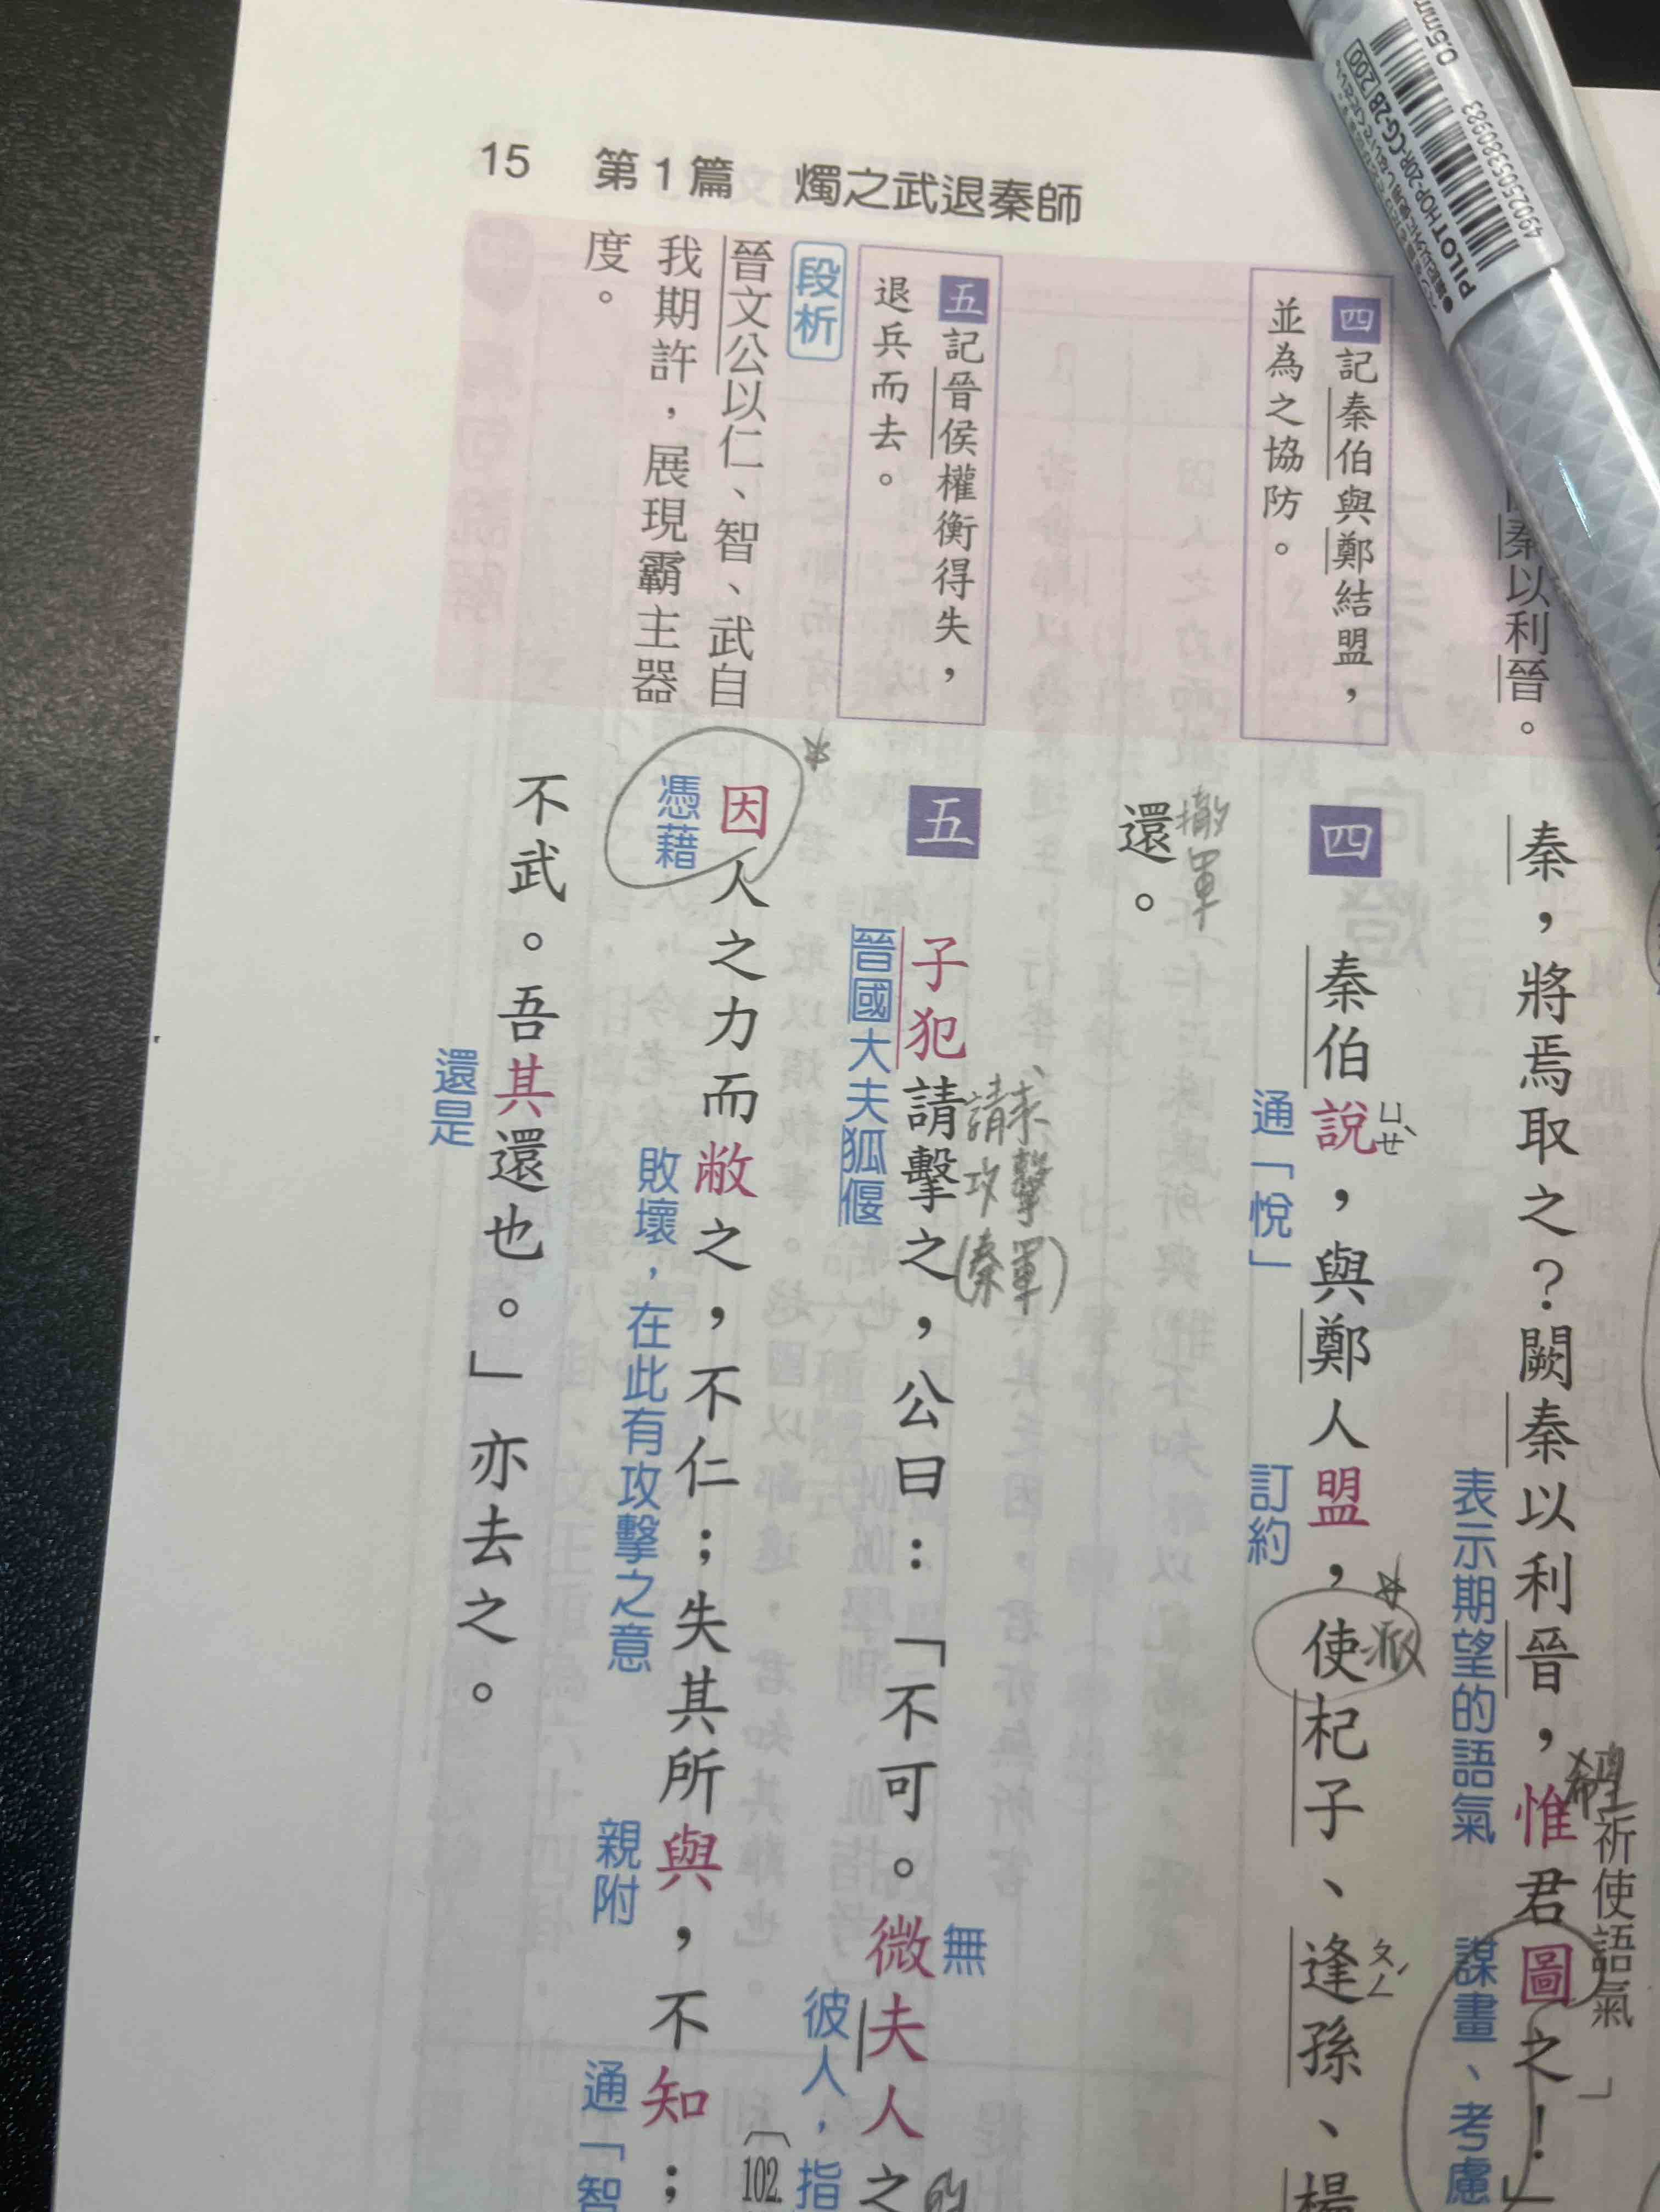 15 第1篇 燭之武退秦師
秦以利晉。
四 記秦伯與鄭結盟，
並為之協防。
五 記晉侯權衡得失，
退兵而去。
段析
晉文公以仁、智、武自
我期許，展現霸主器
度。
希望
祈使語氣」
秦，將焉取之？闕秦以利晉，惟君圖之！」
表示期望的語氣
謀畫、考慮
四 秦伯說，與鄭人盟，使杞子、逢孫、楊
ㄩㄝˋ
派
ㄆㄥˊ
通「悅」
訂約
撤軍
還。
請求攻擊(秦軍)
無
五 子犯請擊之，公曰：「不可。微夫人之
的
晉國大夫狐偃
彼人，指
102.
因人之力而敝之，不仁；失其所與，不知；
憑藉
敗壞，在此有攻擊之意
親附
通「智
不武。吾其還也。」亦去之。
還是
PILOT HOP-20R-CG-2B 200
0.5mm
4902505380983